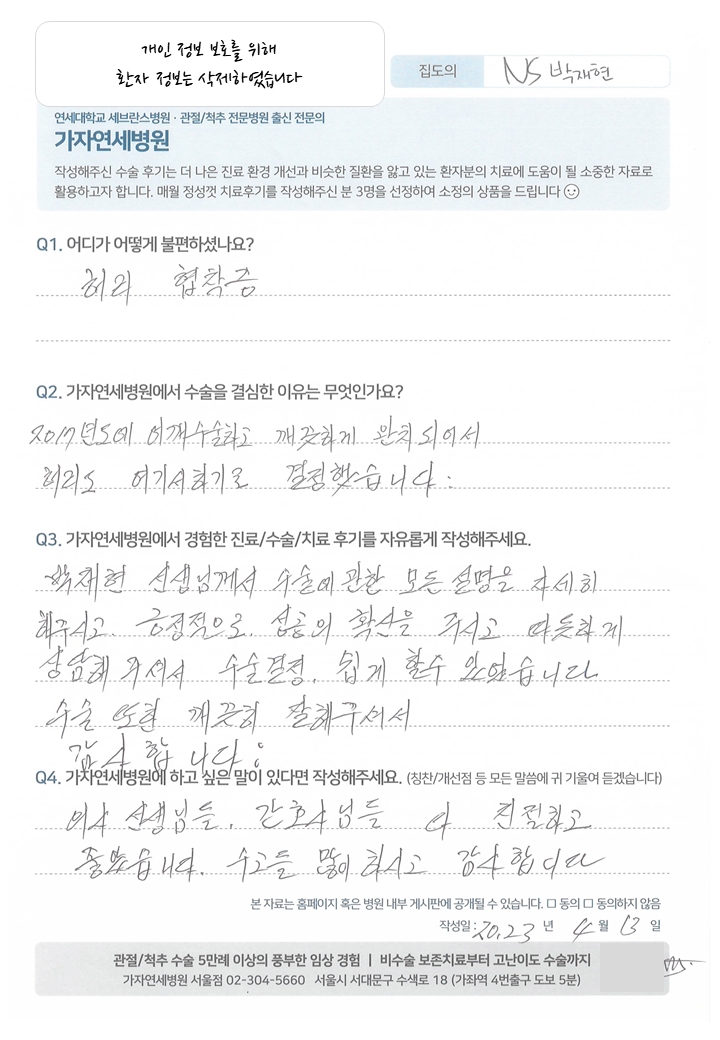 개인 정보 보호를 위해
환자 정보는 삭제하였습니다
집도의 NS 박재현
연세대학교 세브란스병원 · 관절/척추 전문병원 출신 전문의
가자연세병원
작성해주신 수술 후기는 더 나은 진료 환경 개선과 비슷한 질환을 앓고 있는 환자분의 치료에 도움이 될 소중한 자료로
활용하고자 합니다. 매월 정성껏 치료후기를 작성해주신 분 3명을 선정하여 소정의 상품을 드립니다
Q1. 어디가 어떻게 불편하셨나요?
허리 협착증
Q2. 가자연세병원에서 수술을 결심한 이유는 무엇인가요?
2017년도에 어깨수술하고 깨끗하게 완치되어서
허리도 여기서하기로 결정했습니다.
Q3. 가자연세병원에서 경험한 진료/수술/치료 후기를 자유롭게 작성해주세요.
박재현 선생님께서 수술에관한 모든설명을 자세히
해주시고. 긍정적으로 성공의 확신을 주시고 따뜻하게
상담해 주셔서 수술결정. 쉽게 할수 있었습니다
수술 또한 깨끗히 잘해주셔서
감사합니다:
Q4. 가자연세병원에 하고 싶은 말이 있다면 작성해주세요. (칭찬/개선점 등 모든 말씀에 귀 기울여 듣겠습니다)
의사 선생님들, 간호사님들 다 친절하고
좋았습니다. 수고들 많이 하시고 감사합니다
본 자료는 홈페이지 혹은 병원 내부 게시판에 공개될 수 있습니다. □ 동의 □ 동의하지 않음
작성일: 20.23 년 4 월 13 일
관절/척추 수술 5만례 이상의 풍부한 임상 경험 | 비수술 보존치료부터 고난이도 수술까지
가자연세병원 서울점 02-304-5660 서울시 서대문구 수색로 18 (가좌역 4번출구 도보 5분)